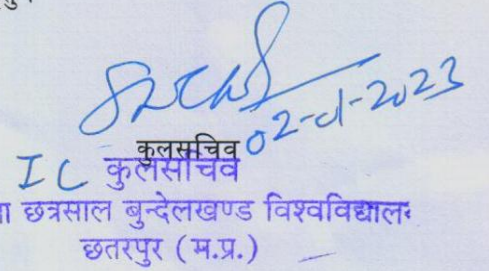 02-01-2023
कुलसचिव
IC कुलसचिव
छत्रसाल बुन्देलखण्ड
छतरपुर (म.प्र.)